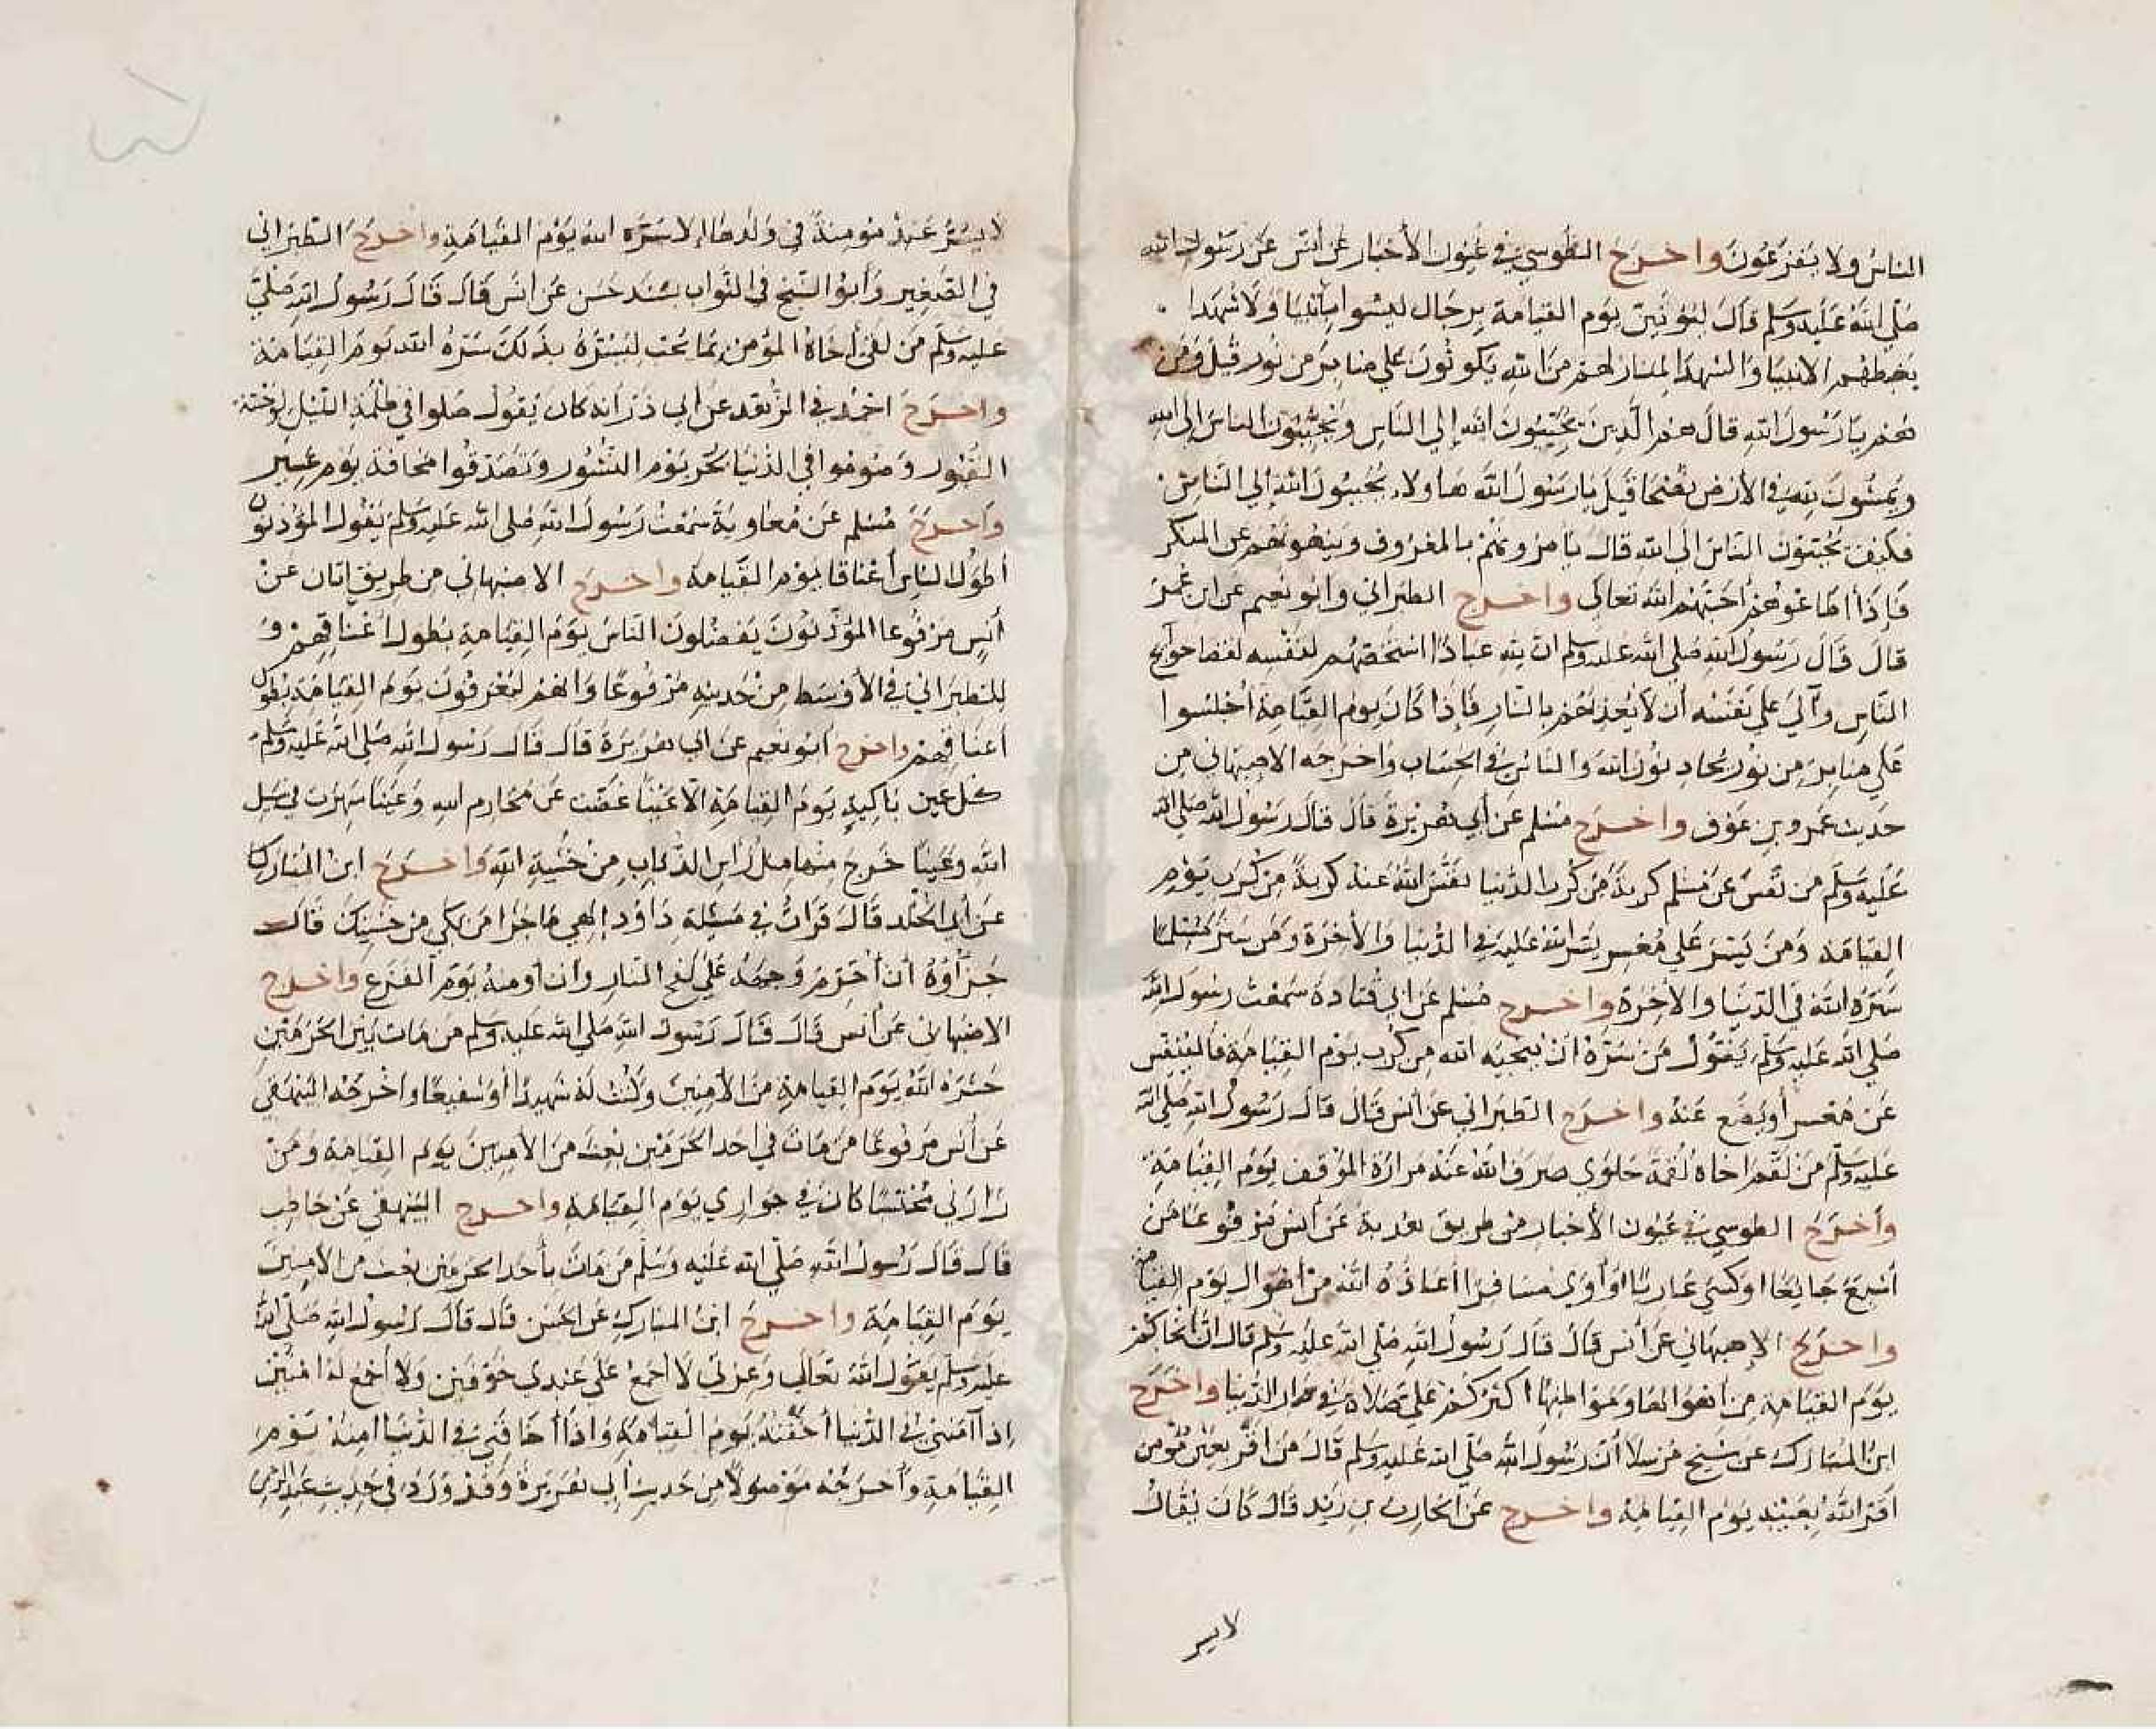 الناس ولا يفزعون واخرج الطوسي في عيون الأخبار عن أنس عن رسول الله
صلى الله عليه وسلم قال ليؤتين يوم القيامة برجال ليسوا بأنبيا ولا شهدا
يغبطهم الانبيا والشهدا لمنازلهم من الله يكونون على منابر من نور قيل ومن
هم يا رسول الله قال هم الذين يحببون الله إلى الناس ويحببون الناس إلى الله
ويمشون لله في الأرض نصحا قيل يا رسول الله هاولاء يحببون الله إلى الناس
فكيف يحببون الناس الى الله قال يأمرونهم بالمعروف وينهونهم عن المنكر
فإذا اطاعوهم احبهم الله تعالى واخرج الطبراني وابو نعيم عن ابن عمر
قال قال رسول الله صلى الله عليه وسلم ان لله عبادا استخصهم لنفسه لقضا حوائج
الناس وآلى على نفسه أن لا يعذبهم بالنار فإذا كان يوم القيامة أجلسوا
على منابر من نور يحادثون الله والناس في الحساب واخرجه الاصبهاني من
حديث عمرو بن عوف واخرج مسلم عن أبي هريرة قال قال رسول الله صلى الله
عليه وسلم من نفس عن مسلم كربة من كرب الدنيا نفس الله عنه كربة من كرب يوم
القيامة ومن يسر على معسر يسر الله عليه في الدنيا والأخرة ومن ستر مسلما
ستره الله في الدنيا والأخرة واخرج مسلم عن ابي قتادة سمعت رسول الله
صلى الله عليه وسلم يقول من سره ان ينجيه الله من كرب يوم القيامة فلينفس
عن معسر أو يضع عنه واخرج الطبراني عن انس قال قال رسول الله صلى الله
عليه وسلم من لقم اخاه لقمة حلوى صرف الله عنه مرارة الموقف يوم القيامة
وأخرج الطوسي في عيون الأخبار من طريق هدبة عن أنس مرفوعا من
أشبع جايعا او كسى عاريا او أوى مسافرا أعاذه الله من أهوال يوم القيامة
واخرج الاصبهاني عن أنس قال قال رسول الله صلى الله عليه وسلم قال ان أنجاكم
يوم القيامة من أهوالها ومواطنها اكثركم على صلاة في دار الدنيا واخرج
ابن المبارك عن شيخ مرسلا أن رسول الله صلى الله عليه وسلم قال من اقر بعين مؤمن
اقر الله بعينه يوم القيامة واخرج عن الحارث بن زيد قال كان يقال
لا يسر
لا يسر عبد مومنة في ولدها إلا سره الله يوم القيامة واخرج الطبراني
في الصغير وأبو الشيخ في الثواب بسند حسن عن انس قال قال رسول الله صلى
عليه وسلم من لقي أخاه المؤمن بما يحب ليسره بذلك سره الله يوم القيامة
واخرج احمد في الزهد عن ابي ذر انه كان يقول صلوا في ظلمة الليل لوحشة
القبور وصوموا في الدنيا لحر يوم النشور وتصدقوا مخافة يوم عسير
واخرج مسلم عن معاوية سمعت رسول الله صلى الله عليه وسلم يقول المؤذنون
أطول الناس أعناقا يوم القيامة واخرج الاصبهاني من طريق ابان عن
أنس مرفوعا المؤذنون يفضلون الناس يوم القيامة بطول أعناقهم و
للطبراني في الأوسط من حديثه مرفوعا وانهم ليعرفون يوم القيامة بطول
أعناقهم واخرج أبو نعيم عن ابي هريرة قال قال رسول الله صلى الله عليه وسلم
كل عين باكية يوم القيامة الا عينا غضت عن محارم الله وعينا سهرت في سبيل
الله وعينا خرج منها مثل رأس الذباب من خشية الله واخرج ابن المبارك
عن أبي الجلد قال قرات في مسئلة داود إلهي ما جزا من بكى من خشيتك قال
جزاؤه أن أحرم وجهه على لفح النار وان أومنه يوم الفزع واخرج
الاصبهاني عن أنس قال قال رسول الله صلى الله عليه وسلم من مات بين الحرمين
حشره الله يوم القيامة من الأمنين وكنت له شهيدا أو شفيعا وأخرجه البيهقي
عن أنس مرفوعا من مات في احد الحرمين بعث من الأمنين يوم القيامة ومن
زارني محتسبا كان في جواري يوم القيامة واخرج البيهقي عن حاطب
قال قال رسول الله صلى الله عليه وسلم من مات بأحد الحرمين بعث من الأمنين
يوم القيامة واخرج ابن المبارك عن الحسن قال قال رسول الله صلى الله
عليه وسلم يقول الله تعالى وعزتي لا أجمع على عبدي خوفين ولا أجمع له امنين
إذا آمنني في الدنيا أخفته يوم القيامة واذا أخافني في الدنيا امنته يوم
القيامة وأخرجه موصولا من حديث أبي هريرة وقد ورد في حديث عبد الرحمن